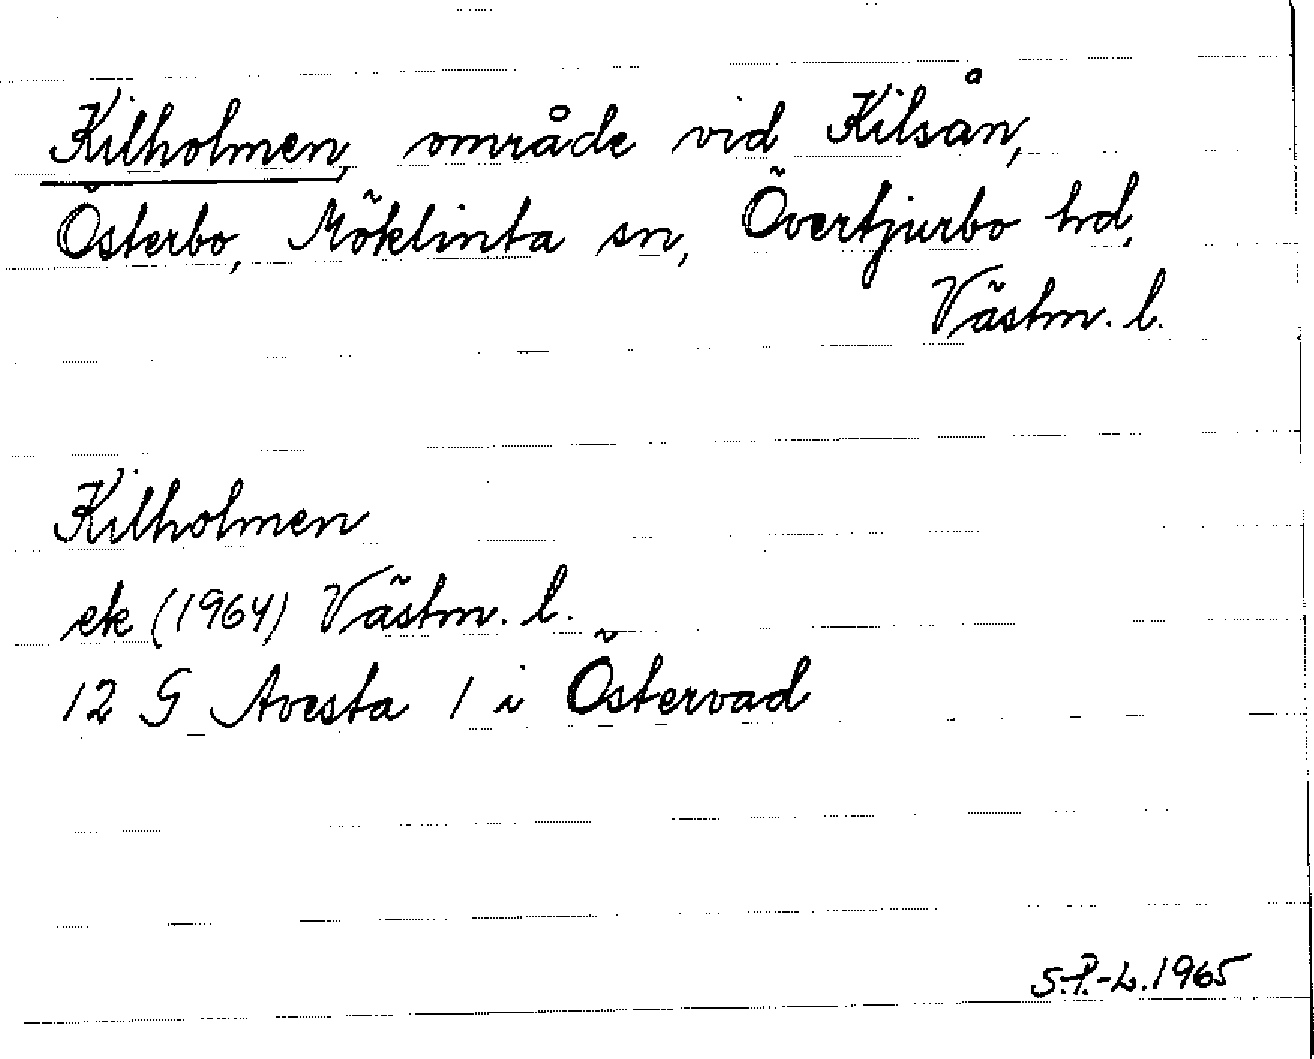 Kilholmen, område vid Kilsån,
Österbo, Möklinta sn, Övertjurbo hd,
Västm. l.
Kilholmen
ek (1964) Västm. l.
12 G Avesta 1 i Östervad
S.P.-L. 1965